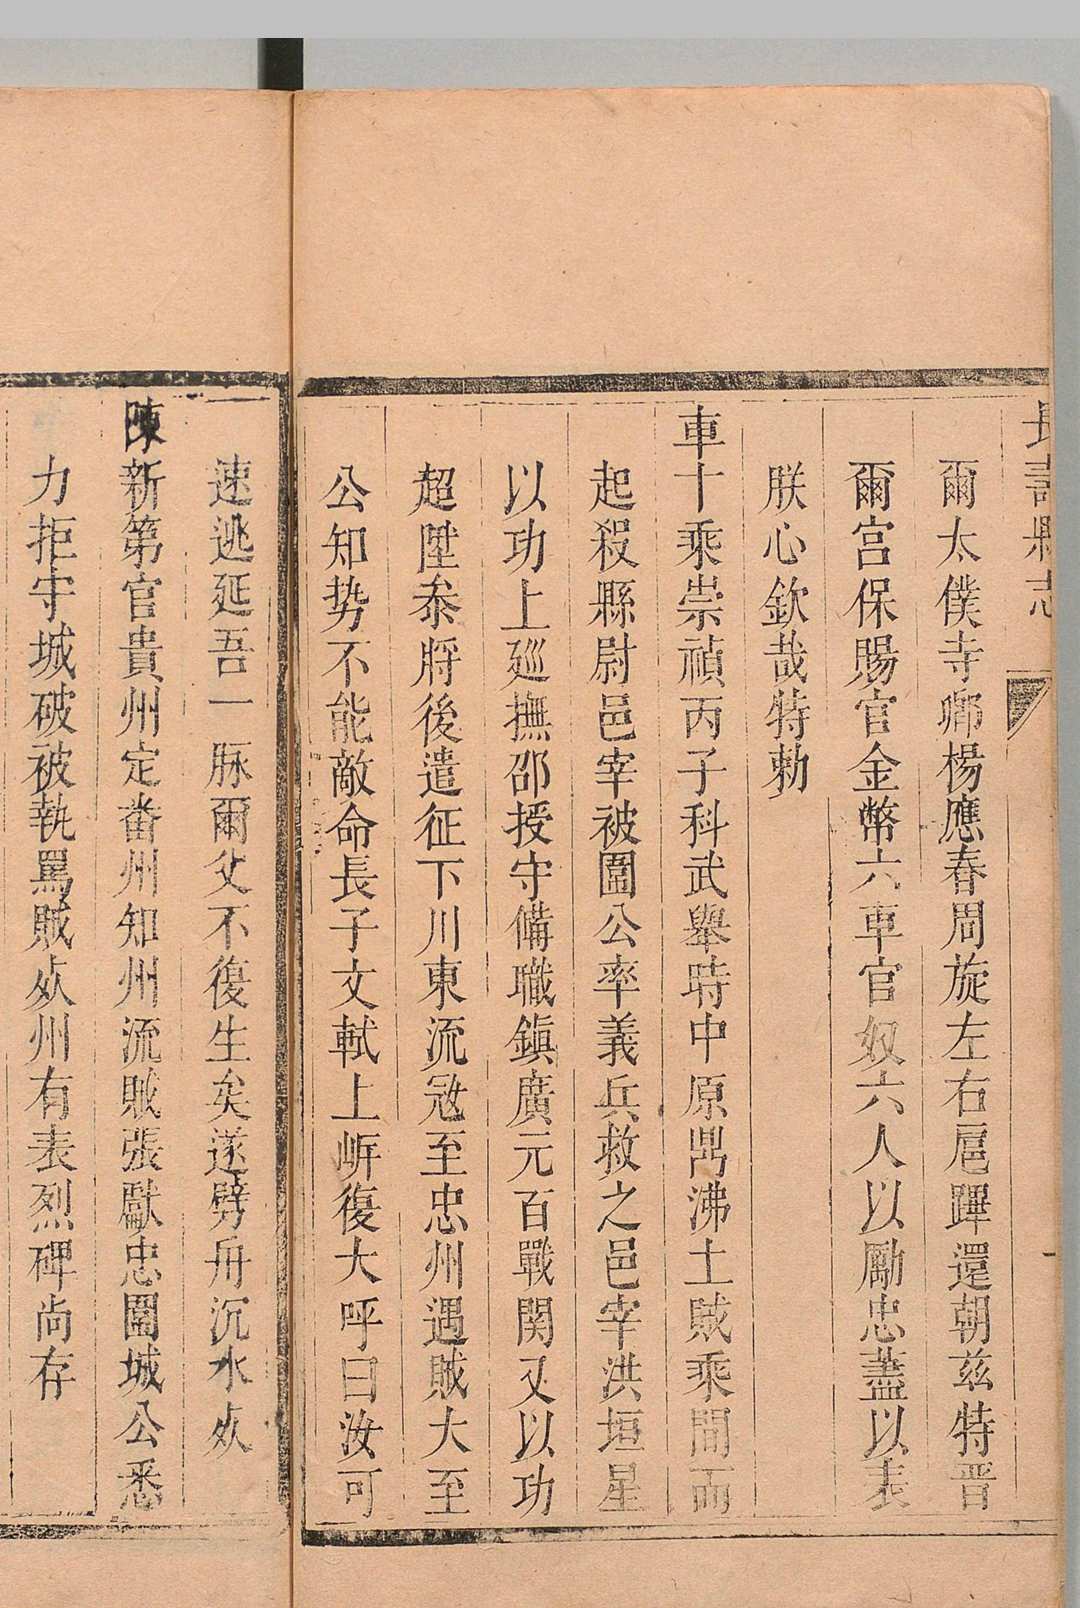 長壽縣志
爾太僕寺鄉楊應春周旋左右扈蹕還朝茲特晋
爾宫保賜官金幣六車官奴六人以勵忠藎以表
朕心欽哉特勅
車十乘崇禎丙子科武舉時中原鼎沸土賊乘間而
起殺縣尉邑宰被圍公率義兵救之邑宰洪垣星
以功上廵撫邵授守備職鎭廣元百戰関又以功
超陞叅將後遣征下川東流冦至忠州遇賊大至
公知势不能敵命長子文軾上岍復大呼曰汝可
速逃延吾一脉爾父不復生矣遂劈舟沉水死
陳新第官貴州定番州知州流賊張獻忠圍城公悉
力拒守城破被執罵賊死州有表烈碑尚存